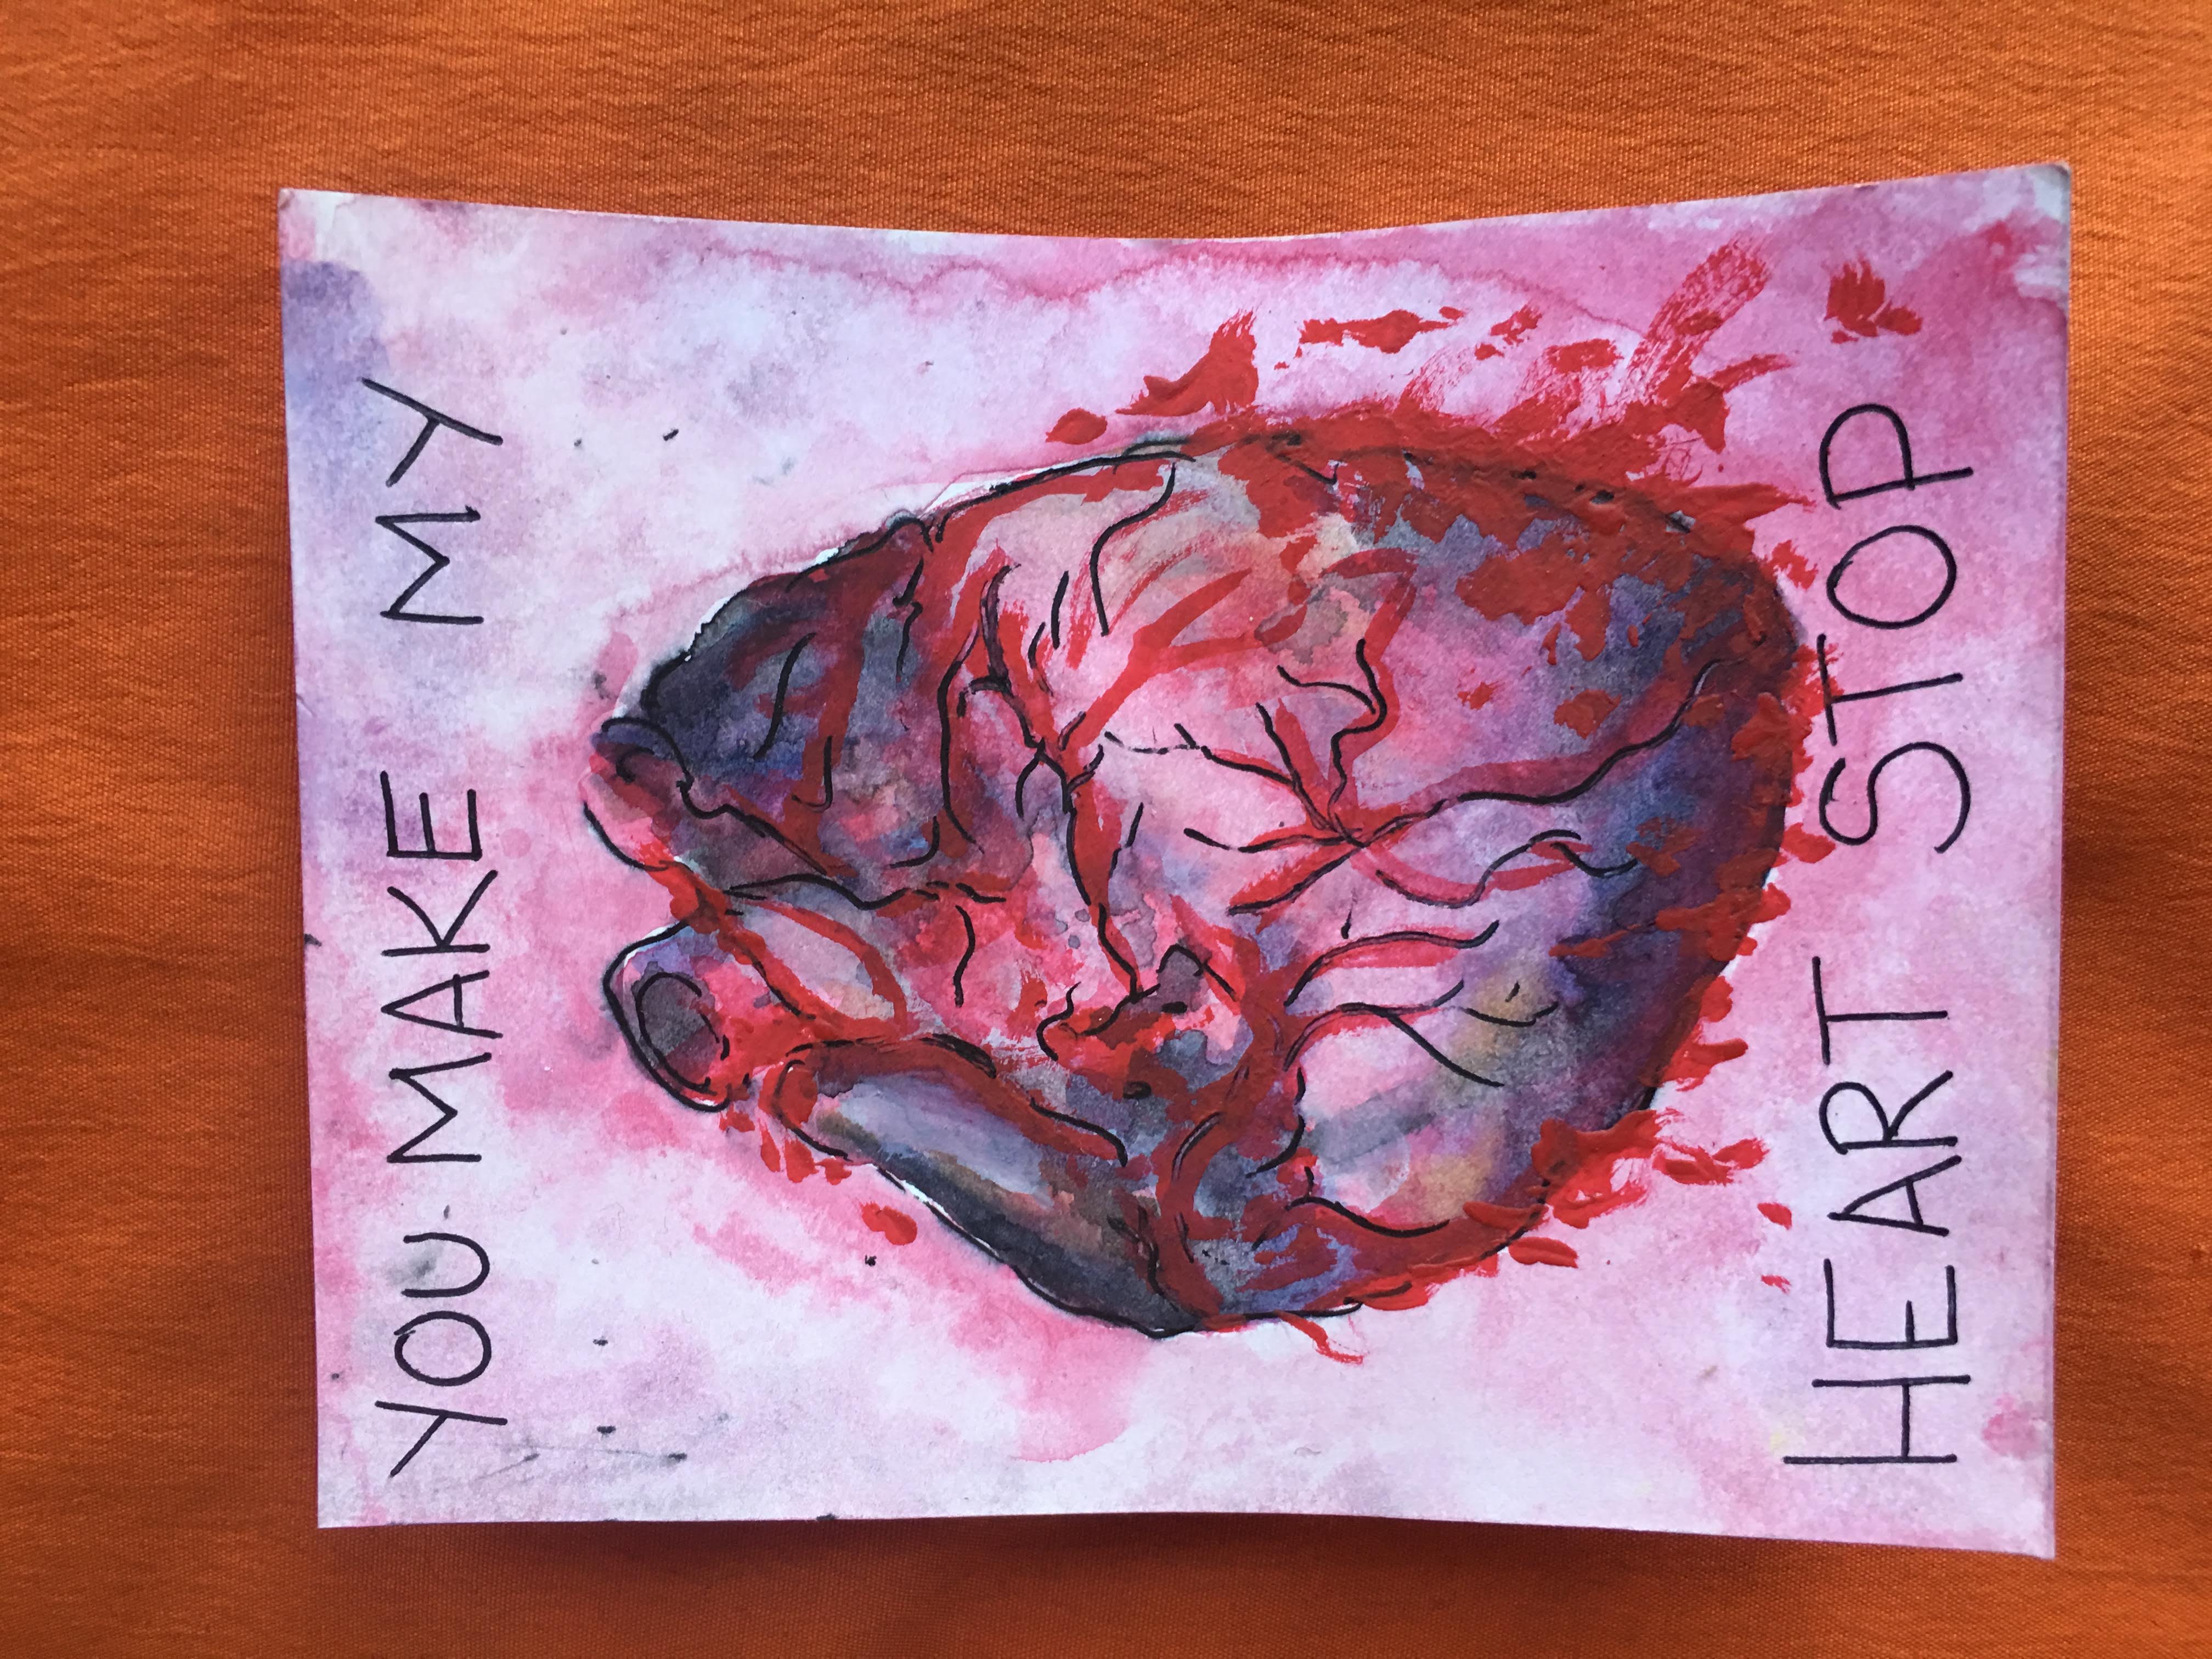 YOU MAKE MY
HEART STOP